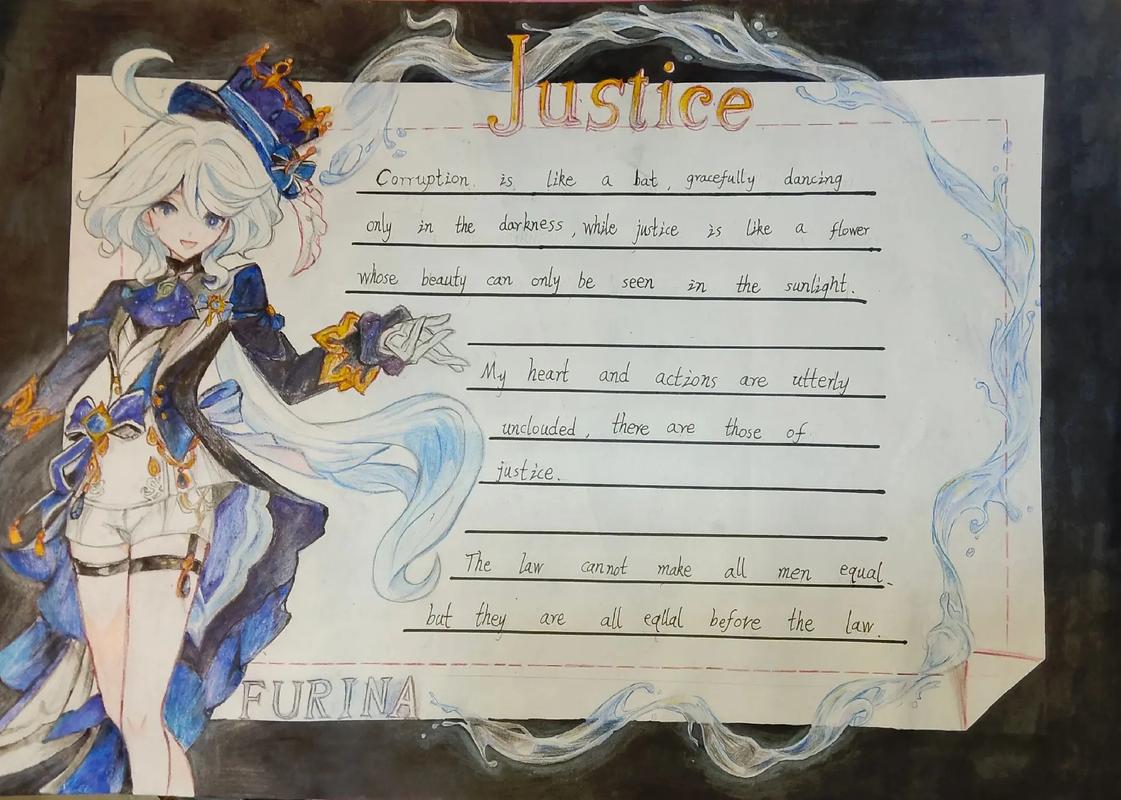 Justice
Corruption is like a bat, gracefully dancing
only in the darkness, while justice is like a flower
whose beauty can only be seen in the sunlight.
My heart and actions are utterly
unclouded, there are those of
justice.
The law cannot make all men equal.
but they are all eqUal before the law.
FURINA